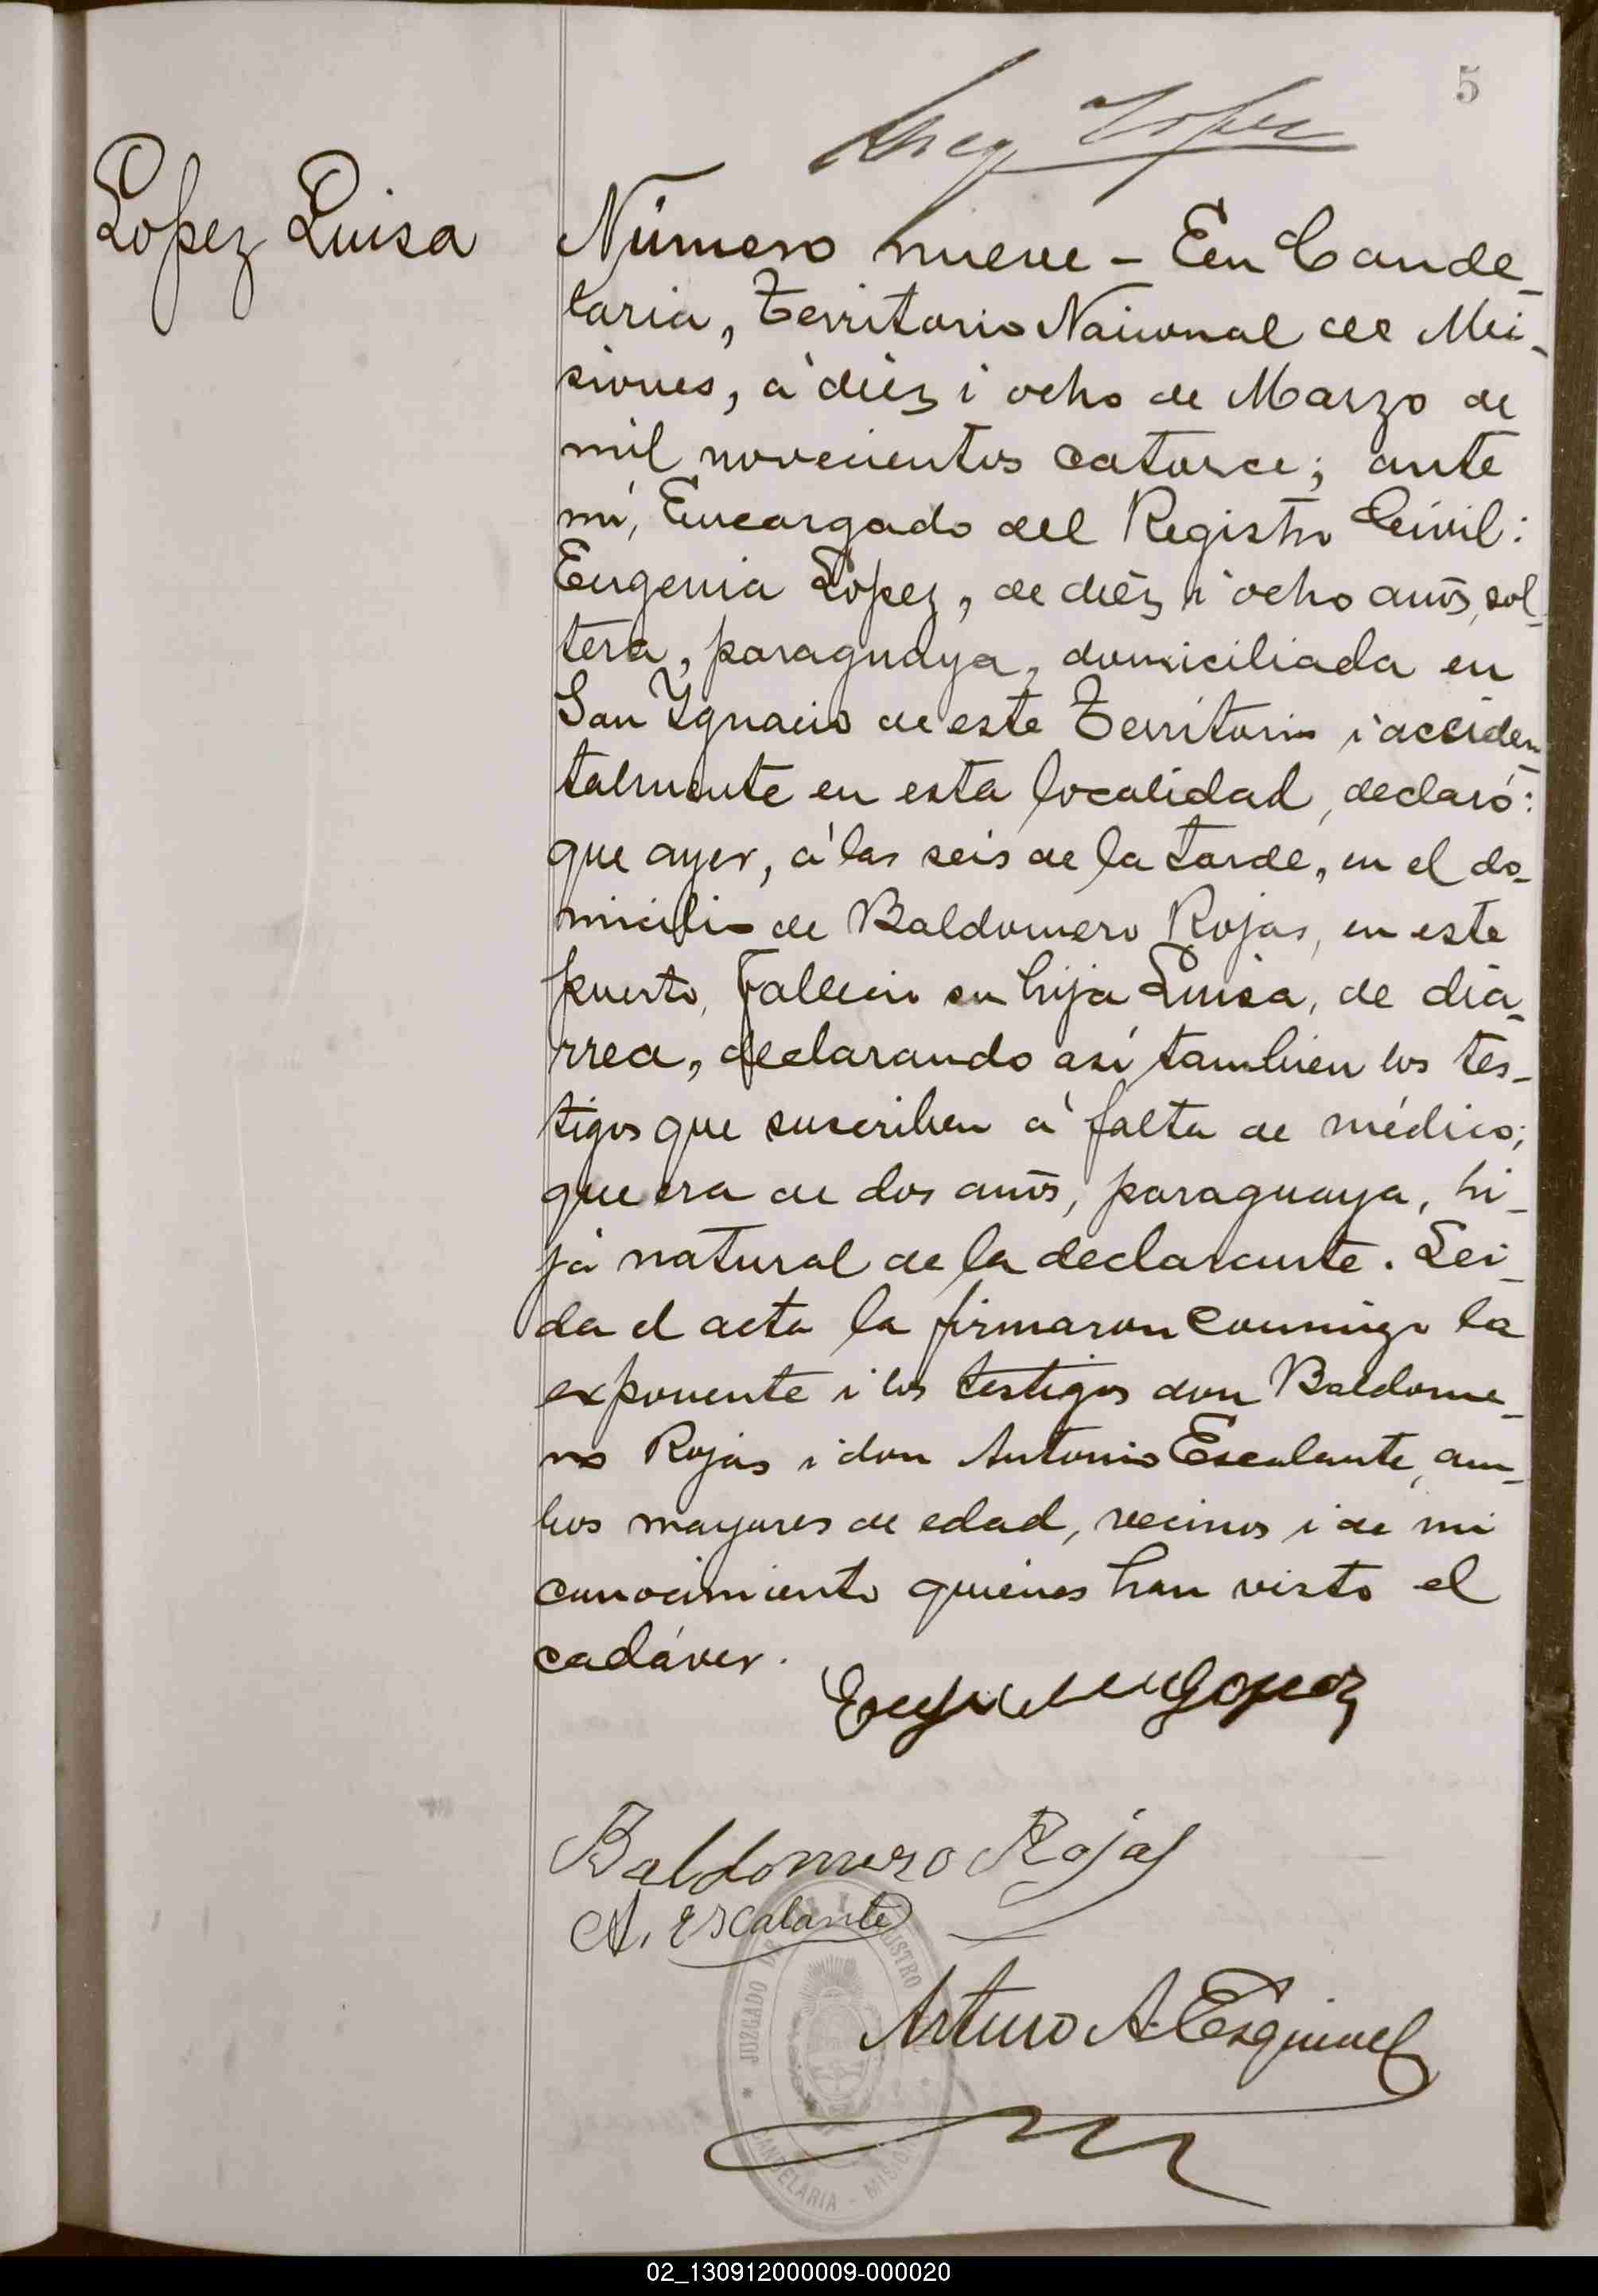 5
Lopez
Lopez Luisa
Número nueve - En Cande-
laria, Territorio Nacional de Mi-
siones, á diéz i ocho de Marzo de
mil novecientos catorce; ante
mí, Encargado del Registro Civil:
Eugenia Lopez, de diéz i ocho años, sol-
tera, paraguaya, domiciliada en
San Ygnacio de este Territorio i acciden-
talmente en esta localidad, declaró:
que ayer, á las seis de la tarde, en el do-
micilio de Baldomero Rojas, en este
puerto, falleció su hija Luisa, de dia-
rrea, declarando así tambien los tes-
tigos que suscriben á falta de médico;
que era de dos años, paraguaya, hi-
ja natural de la declarante. Lei-
da el acta la firmaron conmigo la
exponente i los testigos don Baldome-
ro Rojas i don Antonio Escalante, am-
bos mayores de edad, vecinos i de mi
conocimiento quiénes han visto el
cadáver.
Eugenia Lopez
Baldomero Rojas
A. Escalante
Arturo A. Esquivel
JUZGADO DE
CANDELARIA - MISIONES
02_130912000009-000020